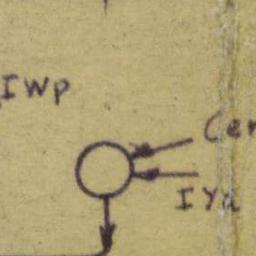 IWp
Cer
IYa